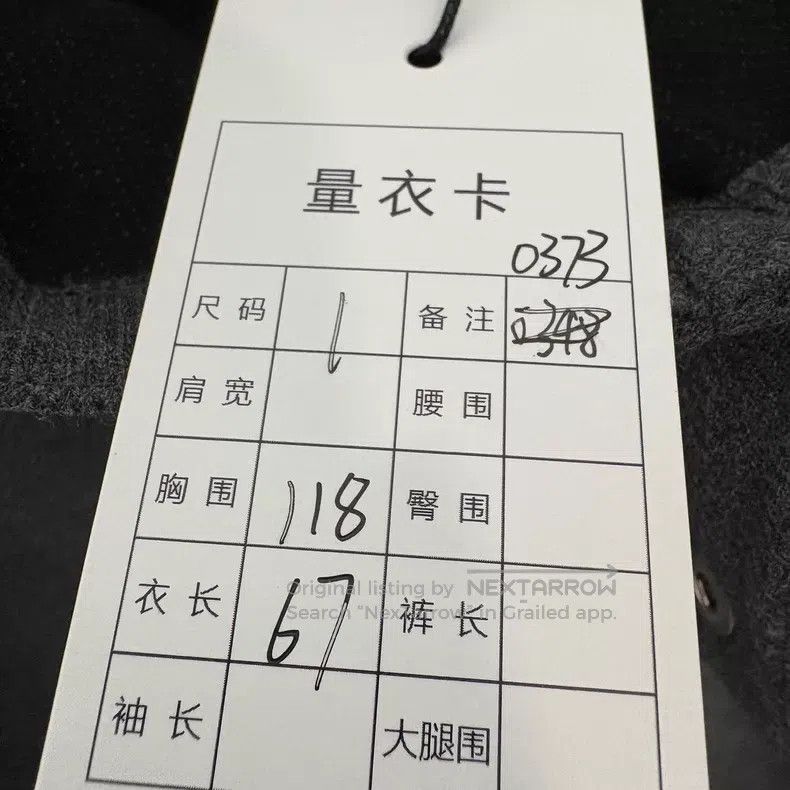 量衣卡
0373
尺码 1 备注
肩宽 腰围
胸围 118 臀围
衣长 67 裤长
Original listing by NEXTARROW
Search "Nextarrow" in Grailed app.
袖长 大腿围